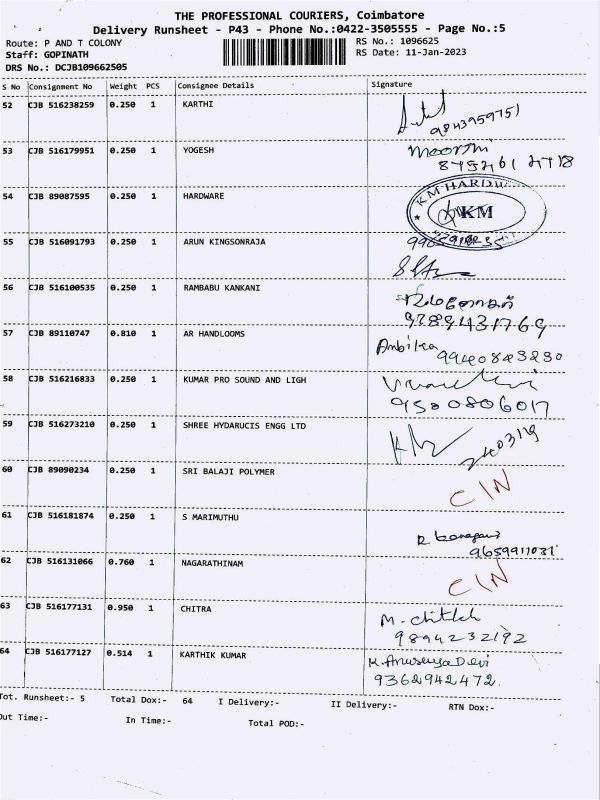 THE PROFESSIONAL COURIERS, Coimbatore
Delivery Runsheet - P43 - Phone No.:0422-3505555 - Page No.:5
Route: P AND T COLONY RS No.: 1096625
Staff: GOPINATH RS Date: 11-Jan-2023
DRS No.: DCJB109662505
S No Consignment No Weight PCS Consignee Details Signature
52 CJB 516238259 0.250 1 KARTHI
9843959751
53 CJB 516179951 0.250 1 YOGESH Moorthi
54 CJB 89087595 0.250 1 HARDWARE KM HARDW
KM
55 CJB 516091793 0.250 1 ARUN KINGSONRAJA
56 CJB 516100535 0.250 1 RAMBABU KANKANI
57 CJB 89110747 0.810 1 AR HANDLOOMS Ambika
9940843230
58 CJB 516216833 0.250 1 KUMAR PRO SOUND AND LIGH
9500806017
59 CJB 516273210 0.250 1 SHREE HYDARUCIS ENGG LTD
60 CJB 89090234 0.250 1 SRI BALAJI POLYMER CIN
61 CJB 516181874 0.250 1 S MARIMUTHU
9659911031
62 CJB 516131066 0.760 1 NAGARATHINAM CIN
63 CJB 516177131 0.950 1 CHITRA M. Chitra
9894232192
64 CJB 516177127 0.514 1 KARTHIK KUMAR K. Anusuya Devi
9362942472
Tot. Runsheet:- 5 Total Dox:- 64 I Delivery:- II Delivery:- RTN Dox:-
Out Time:- In Time:- Total POD:-